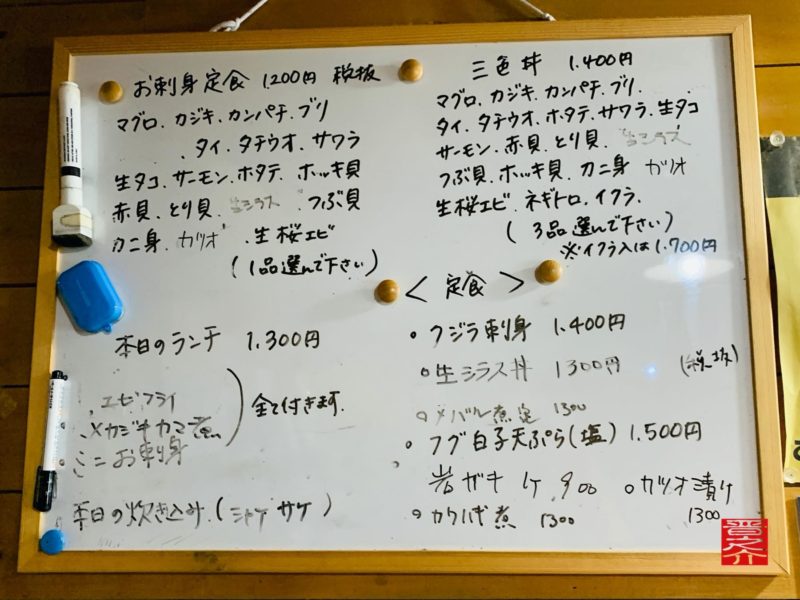 お刺身定食 1.200円 税抜
マグロ、カジキ、カンパチ、ブリ
、タイ、タチウオ、サワラ
生タコ、サーモン、ホタテ、ホッキ貝
赤貝、とり貝、生シラス、つぶ貝
カニ身 カツオ 、生桜エビ
(1品選んで下さい)
本日のランチ 1.300円
、エビフライ
、メカジキカマ煮
ミニお刺身
全て付きます。
本日の炊き込み、(シャケ サケ)
三色丼 1.400円
マグロ、カジキ、カンパチ、ブリ、
タイ、タチウオ、ホタテ、サワラ、生タコ
サーモン、赤貝、とり貝、生シラス
つぶ貝、ホッキ貝、カニ身 カツオ
生桜エビ、ネギトロ、イクラ、
(3品選んで下さい)
※イクラ入は1.700円
<定食>
・クジラ刺身 1.400円
○生シラス丼 1300円 (税抜)
○メバル煮定 1300
・フグ白子天ぷら(塩) 1.500円
岩ガキ 1ケ 900 ○カツオ漬け 1300
○カワハギ煮 1300
晋之介